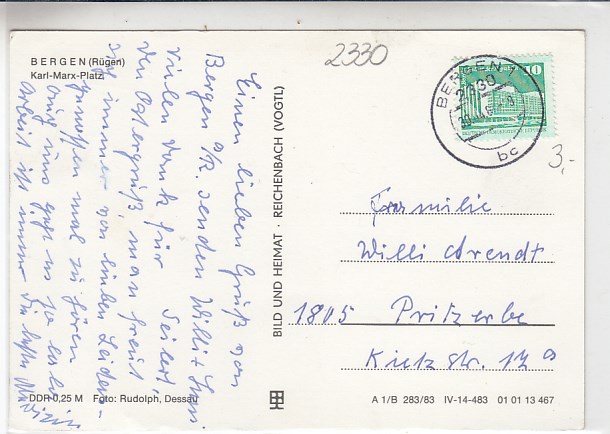 BERGEN (Rügen)
Karl-Marx-Platz
2330
BERGEN 1
2330
bc
10
3,-
Einen lieben Gruß von
Bergen a/R. senden Willi +
vielen Dank für Deinen
den Ostergruß, man freut
sich immer von lieben Leidens-
genossen mal zu hören
Uns geht es ja
Arbeit ist immer die beste Medizin
BILD UND HEIMAT · REICHENBACH (VOGTL)
Familie
Willi Arendt
1805 Pritzerbe
Kietzstr. 17a
DDR 0,25 M Foto: Rudolph, Dessau
A 1/B 283/83 IV-14-483 01 01 13 467